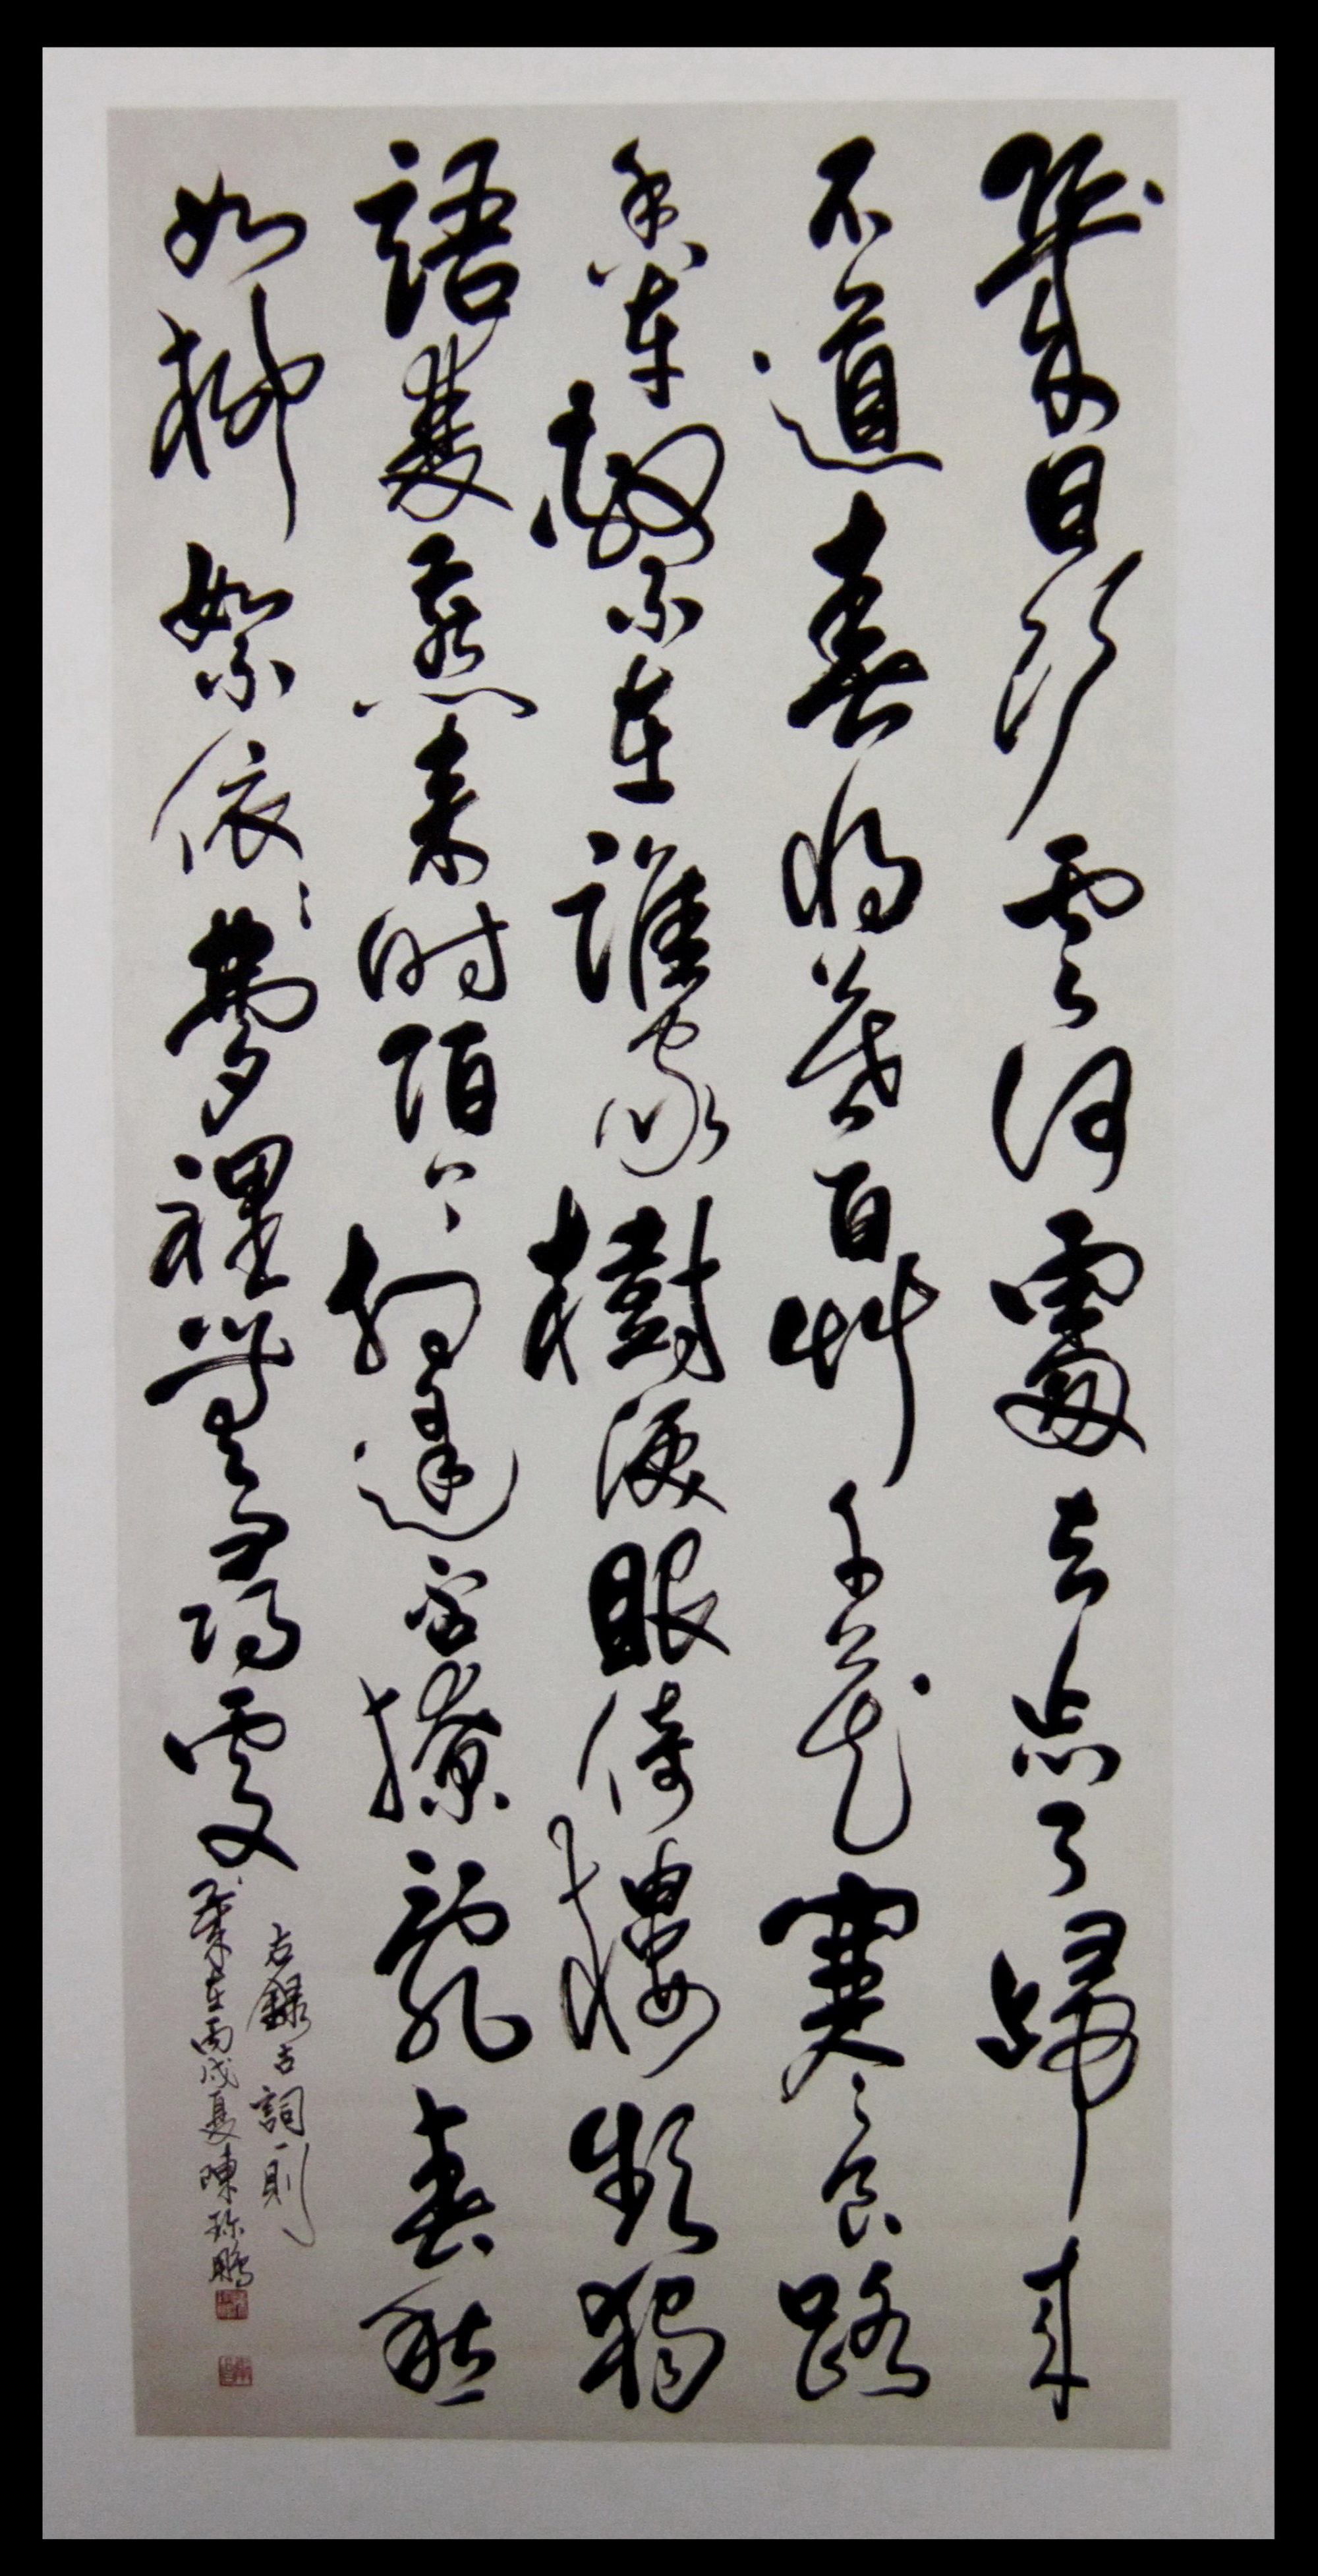 幾日行雲何處去忘了歸來
不道春將暮百草千花寒食路
香車繫在誰家樹淚眼倚樓頻獨
語雙燕來時陌上相逢否撩亂春愁
如柳絮依〻夢裡無尋處
右錄古詞一則
歲在丙戌夏陳鵬